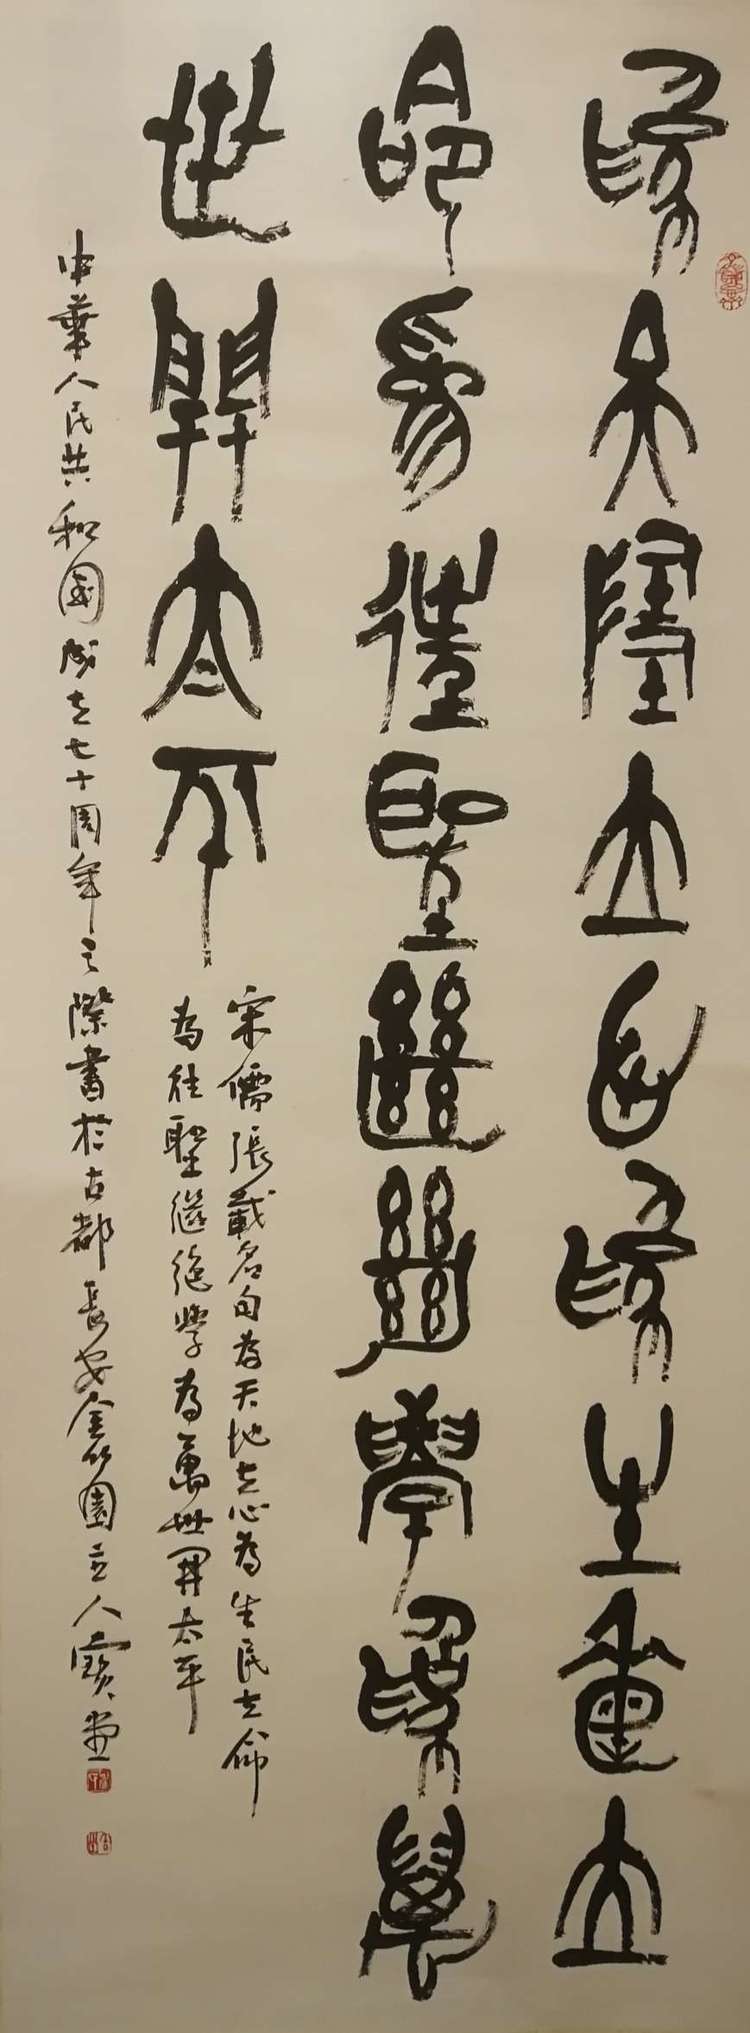 為天地立心為生民立
命為往聖繼絕學為萬
世開太平
宋儒張載名句為天地立心為生民立命
為往聖繼絕學為萬世開太平
中華人民共和國成立七十周年之際書於古都長安園主人寶